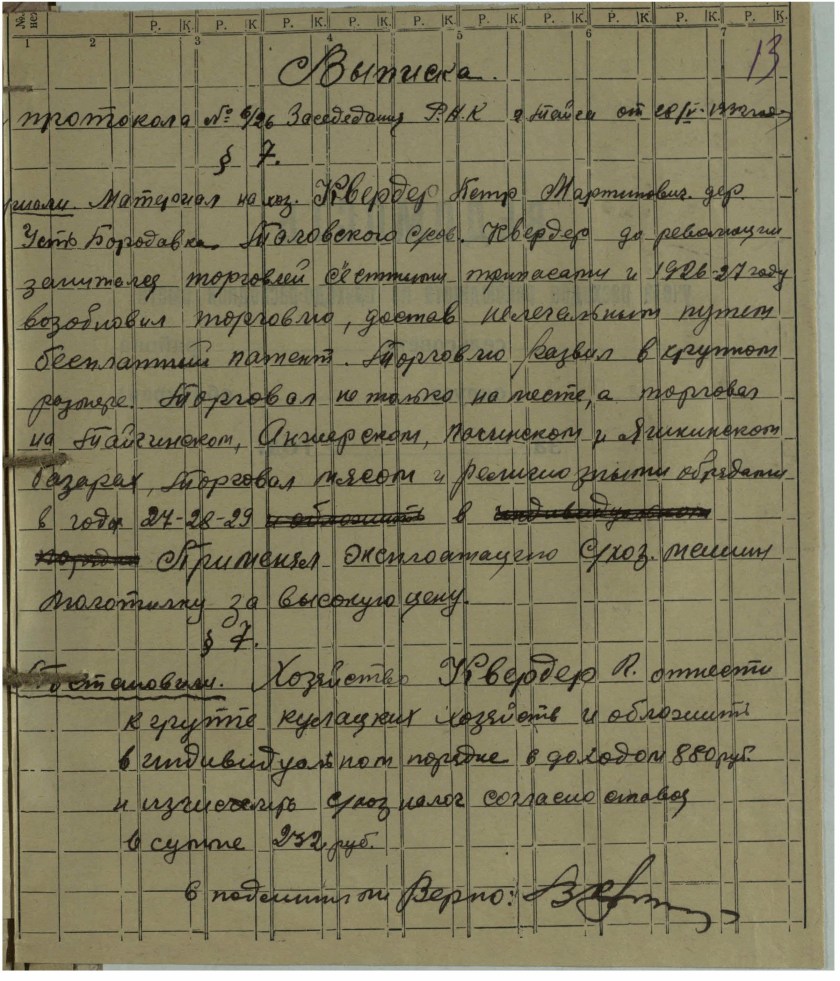 Р. К. Р. К. Р. К. Р. К. Р. К. Р. К.
1 2 3 4 5 6 7
13
Выписка.
протокола № 6/26 Заседедания Р.Н.К г Тайга от
§ 7.
Материал на хоз. Квердер Петр Мартинович. дер.
Усть Бородавка Таловского с/сов. Квердер до революции
занимался торговлей съестными припасами и 1926-27 году
возобновил торговлю, достав нелегальным путем
бесплатный патент. Торговлю развил в крупном
размере. Торговал не только на месте, а торговал
на Тайгинском, Анжерском, Пачинском и Яшкинском
базарах, Торговал мясом и религиозными обрядами
в года 27-28-29 и обложить в индивидуальном
порядке Применял эксплоатацию с/хоз. машин
молотилку за высокую цену.
§ 7.
Постановили. Хозяйство Квердер П. отнести
к группе кулацких хозяйств и обложить
в индивидуальном порядке с доходом 880 руб.
и изчислить с/хоз налог согласно ставок
в сумме 232 руб.
Верно: